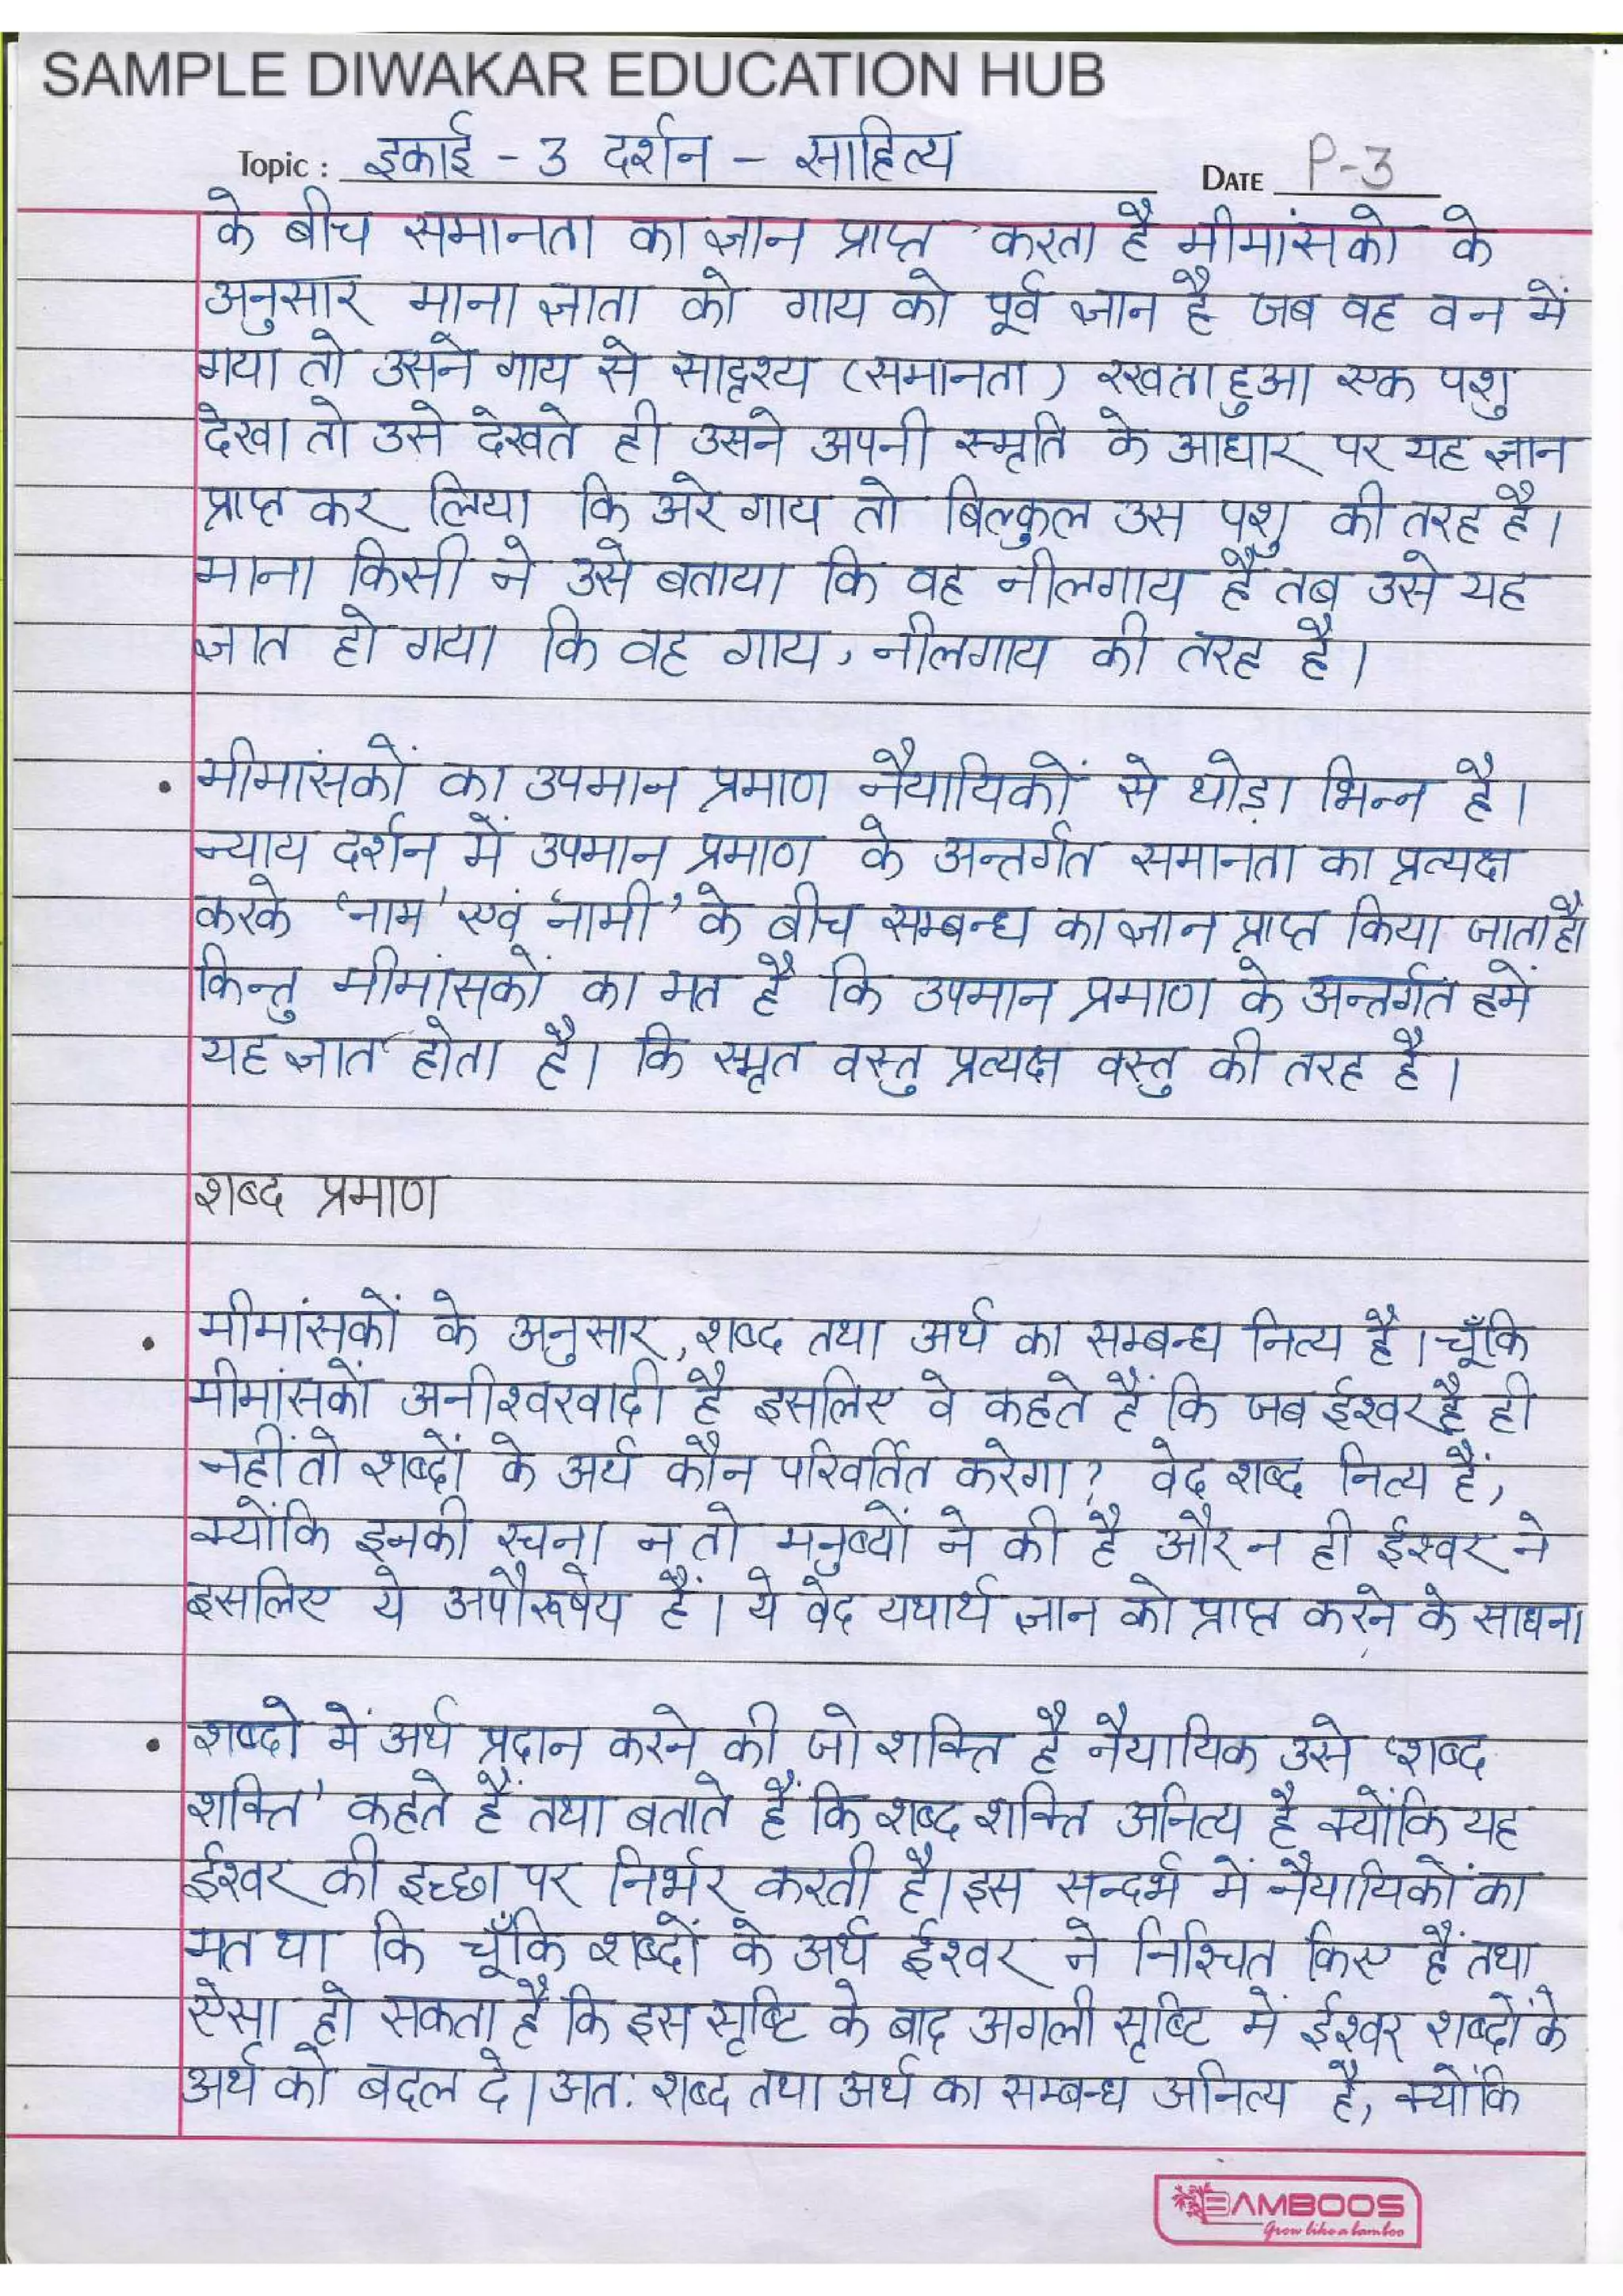 SAMPLE DIWAKAR EDUCATION HUB
Topic : इकाई - 3 दर्शन - साहित्य DATE P-3
के बीच समानता का ज्ञान प्राप्त करता है मीमांसको के
अनुसार माना ज्ञाता को गाय को पूर्व ज्ञान है जब वह वन में
गया तो उसने गाय से सादृश्य (समानता) रखता हुआ एक पशु
देखा तो उसे देखते ही उसने अपनी स्मृति के आधार पर यह ज्ञान
प्राप्त कर लिया कि अरे गाय तो बिल्कुल उस पशु की तरह है।
माना किसी ने उसे बताया कि वह नीलगाय है तब उसे यह
ज्ञात हो गया कि वह गाय, नीलगाय की तरह है।
• मीमांसकों का उपमान प्रमाण नैयायिकों से थोड़ा भिन्न है।
न्याय दर्शन में उपमान प्रमाण के अन्तर्गत समानता का प्रत्यक्ष
करके 'नाम' एवं 'नामी' के बीच सम्बन्ध का ज्ञान प्राप्त किया जाता है।
किन्तु मीमांसकों का मत है कि उपमान प्रमाण के अन्तर्गत हमें
यह ज्ञात होता है। कि स्मृत वस्तु प्रत्यक्ष वस्तु की तरह है।
शब्द प्रमाण
• मीमांसकों के अनुसार, शब्द तथा अर्थ का सम्बन्ध नित्य है। चूँकि
मीमांसकों अनीश्वरवादी है इसलिए वे कहते हैं कि जब ईश्वर है ही
नहीं तो शब्दों के अर्थ कौन परिवर्तित करेगा? वेद शब्द नित्य हैं,
क्योंकि इनकी रचना न तो मनुष्यों ने की है और न ही ईश्वर ने
इसलिए ये अपौरूषेय हैं। ये वेद यथार्थ ज्ञान को प्राप्त करने के साधन।
• शब्दो में अर्थ प्रदान करने की जो शक्ति है नैयायिक उसे 'शब्द
शक्ति' कहते हैं तथा बताते हैं कि शब्द शक्ति अनित्य है क्योंकि यह
ईश्वर की इच्छा पर निर्भर करती है। इस सन्दर्भ में नैयायिकों का
मत था कि चूँकि शब्दों के अर्थ ईश्वर ने निश्चित किए हैं तथा
ऐसा हो सकता है कि इस सृष्टि के बाद अगली सृष्टि में ईश्वर शब्दों के
अर्थ को बदल दे। अत: शब्द तथा अर्थ का सम्बन्ध अनित्य है, क्योंकि
BAMBOOS
Grow like a bamboo